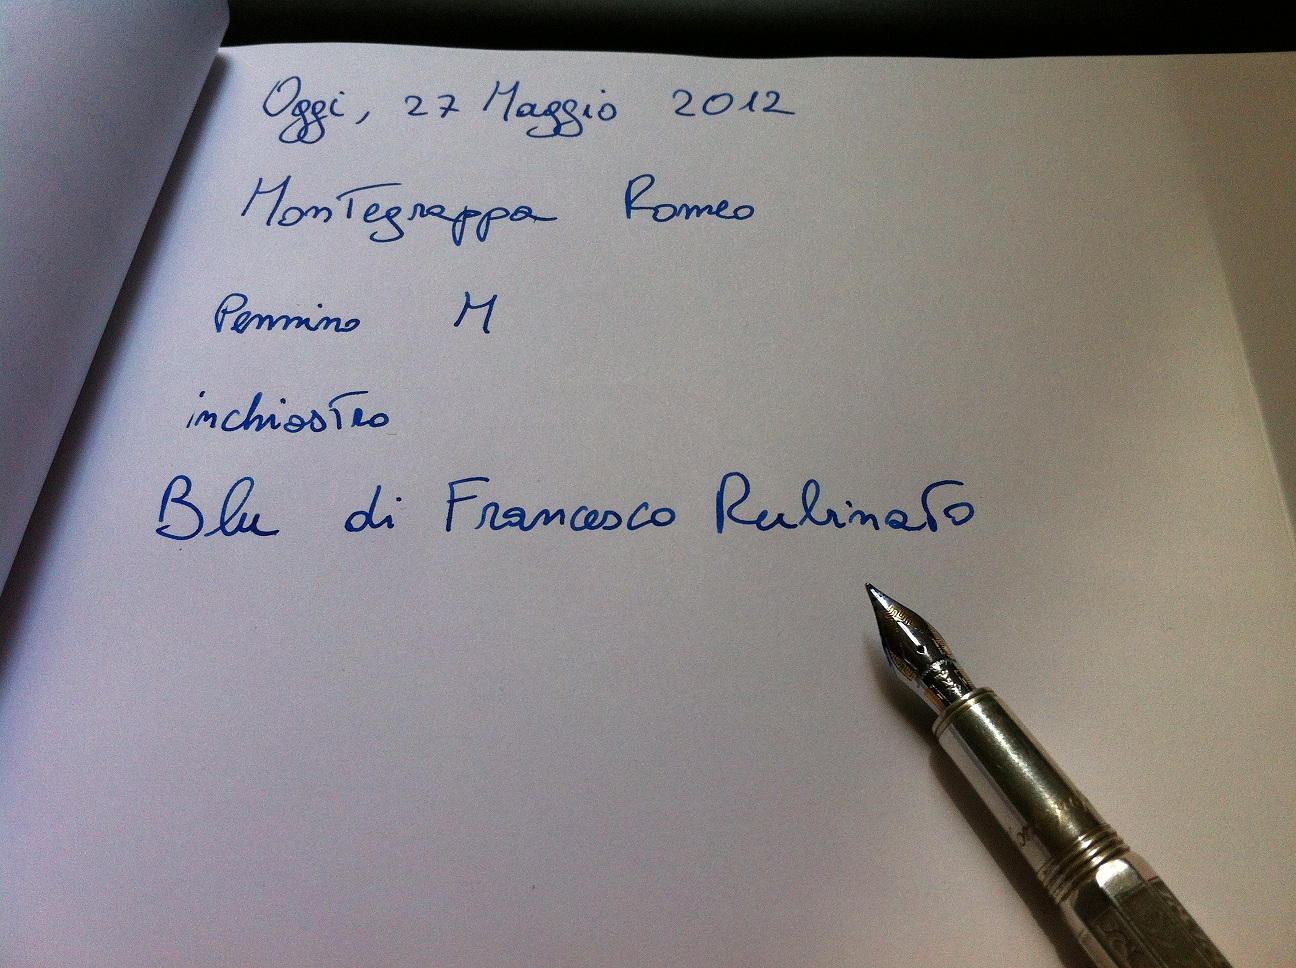 Oggi, 27 Maggio 2012
Montegrappa Romeo
Pennino M
inchiostro
Blu di Francesco Rubinato